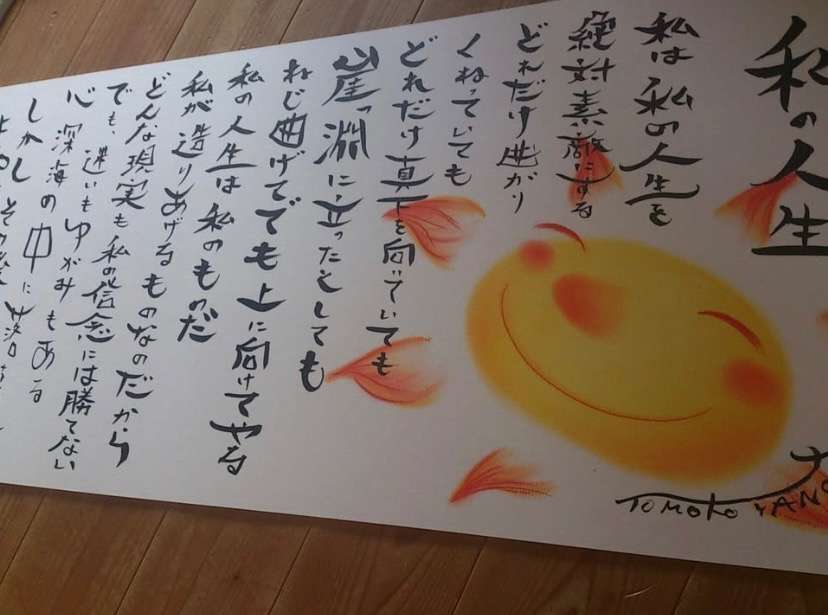 私の人生
私は私の人生を
絶対素敵にする
どれだけ曲がり
くねっていても
どれだけ真下を向いていても
崖っ淵に立ったとしても
ねじ曲げてでも上に向けてやる
私の人生は私のものだ
私が造りあげるものなのだから
どんな現実も私の信念には勝てない
でも、迷いもゆがみもある
心深海の中に
しかし
TOMOKO YANO